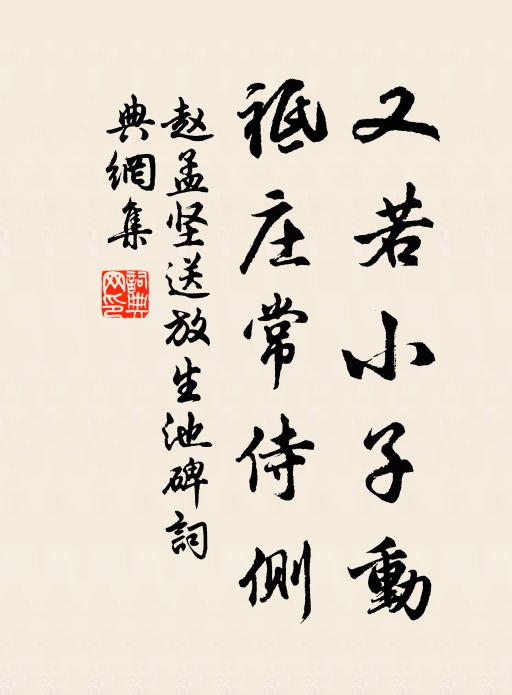 又若小子動
祗庄常侍側
赵孟坚送放生池碑詞
典網集
詞典
网印